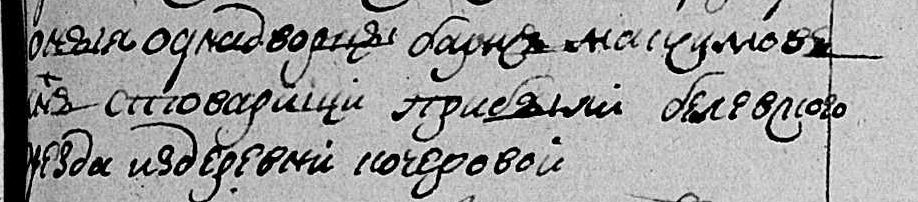 оныя однадворцы барис наскумовъ
съ стоварищи прибыли белевского
уезда издеревни кочеровой